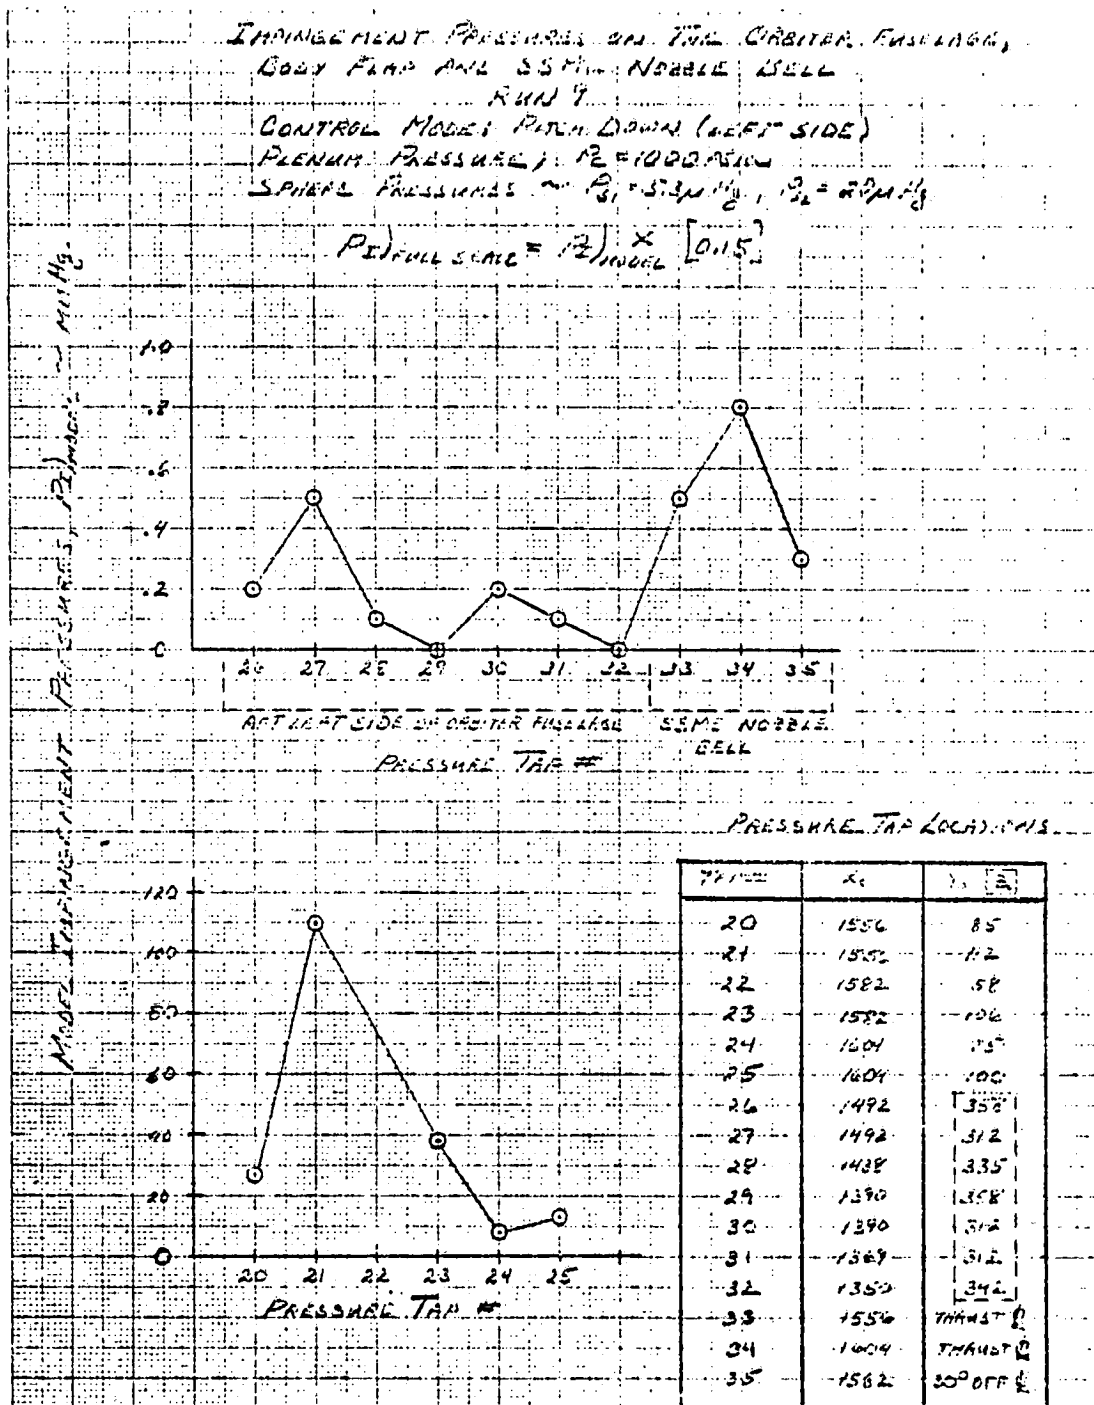 IMPINGEMENT PRESSURES ON THE ORBITER FUSELAGE,
BODY FLAP AND SSME NOZZLE BELL
RUN 9
CONTROL MODE: PITCH DOWN (LEFT SIDE)
PLENUM PRESSURE, Pc = 1000 PSIA
SPHERE PRESSURES ~ PS1 = 53μ Hg, PS2 = 28μ Hg
PI)FULL SCALE = PI)MODEL X [0.15]
MODEL IMPINGEMENT PRESSURES, PI)MODEL ~ MM Hg
1.0
.8
.6
.4
.2
0
26 27 28 29 30 31 32 33 34 35
AFT LEFT SIDE OF ORBITER FUSELAGE SSME NOZZLE
BELL
PRESSURE TAP #
PRESSURE TAP LOCATIONS
120
100
80
60
40
20
0
20 21 22 23 24 25
PRESSURE TAP #
TAP #
20 1556 85
21 1556 112
22 1582 58
23 1582 106
24 1604
25 1604 100
26 1492 358
27 1492 312
28 1438 335
29 1390 358
30 1390 312
31 1369 312
32 1350 342
33 1556 THRUST
34 1604 THRUST
35 1582 30° OFF